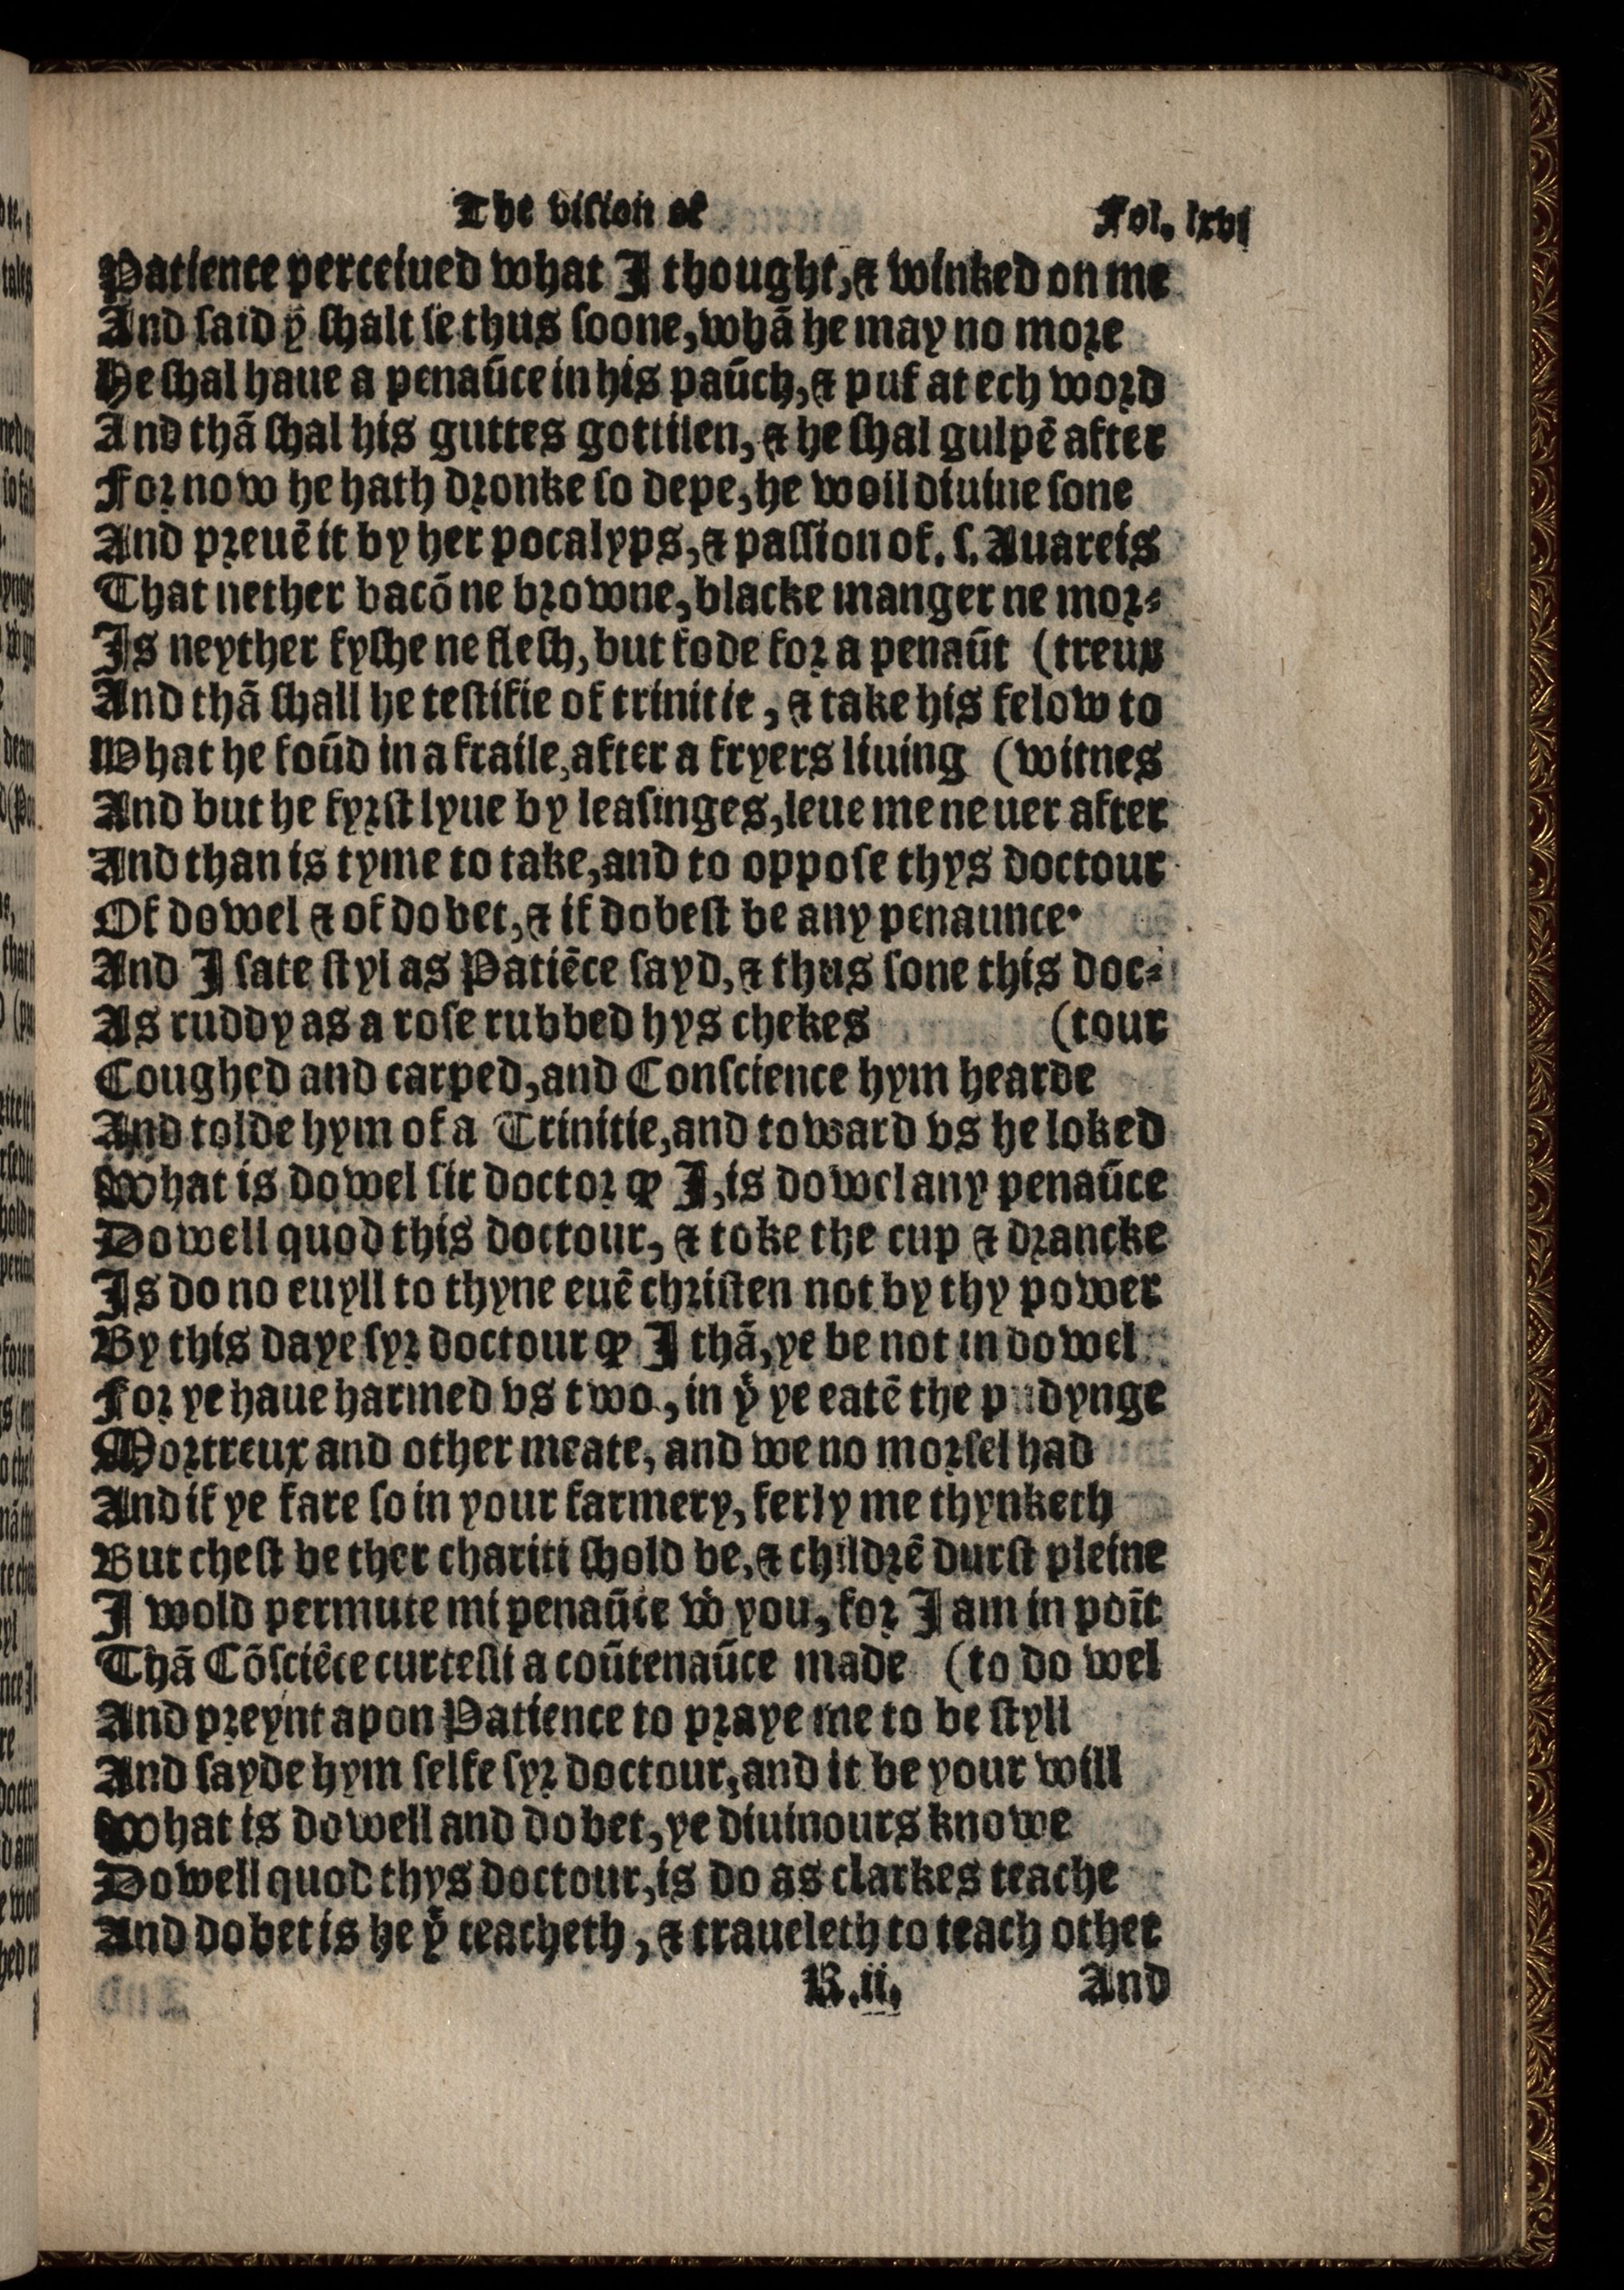 The vision of Fol. lxvi
Patience perceiued what I thought, & winked on me
And said yͧ shalt se thus soone, whā he may no more
He shal haue a penaūce in his paūch, & puf at ech word
And thā shal his guttes gottilen, & he shal gulpē after
For now he hath dronke so depe, he woil diuine sone
And preuē it by her pocalyps, & passion of. s. Auareis
That nether bacō ne browne, blacke manger ne mor⸗
Is neyther fyshe ne flesh, but fode for a penaūt (treux
And thā shall he testifie of trinitie, & take his felow to
What he foūd in a fraile, after a fryers liuing (witnes
And but he fyrst lyue by leasinges, leue me neuer after
And than is tyme to take, and to oppose thys doctour
Of dowel & of dobet, & if dobest be any penaunce.
And I sate styl as Patiēce sayd, & thus sone this doc⸗
As ruddy as a rose rubbed hys chekes (tour
Coughed and carped, and Conscience hym hearde
And tolde hym of a Trinitie, and toward vs he loked
What is dowel sir doctor ꝙ I, is dowel any penaūce
Dowell quod this doctour, & toke the cup & drancke
Is do no euyll to thyne euē christen not by thy power
By this daye syr doctour ꝙ I thā, ye be not in dowel
For ye haue harmed vs two, in yͭ ye eatē the pudynge
Mortreux and other meate, and we no morsel had
And if ye fare so in your farmery, ferly me thynketh
But chest be ther chariti shold be, & childrē durst pleine
I wold permute mi penaūce wͭ you, for I am in poīt
Thā Cōsciēce curtesli a coūtenaūce made (to do wel
And preynt apon Patience to praye me to be styll
And sayde hym selfe syr doctour, and it be your will
What is dowell and dobet, ye diuinours knowe
Dowell quod thys doctour, is do as clarkes teache
And dobet is he yͭ teacheth, & traueleth to teach other
R.ii. And